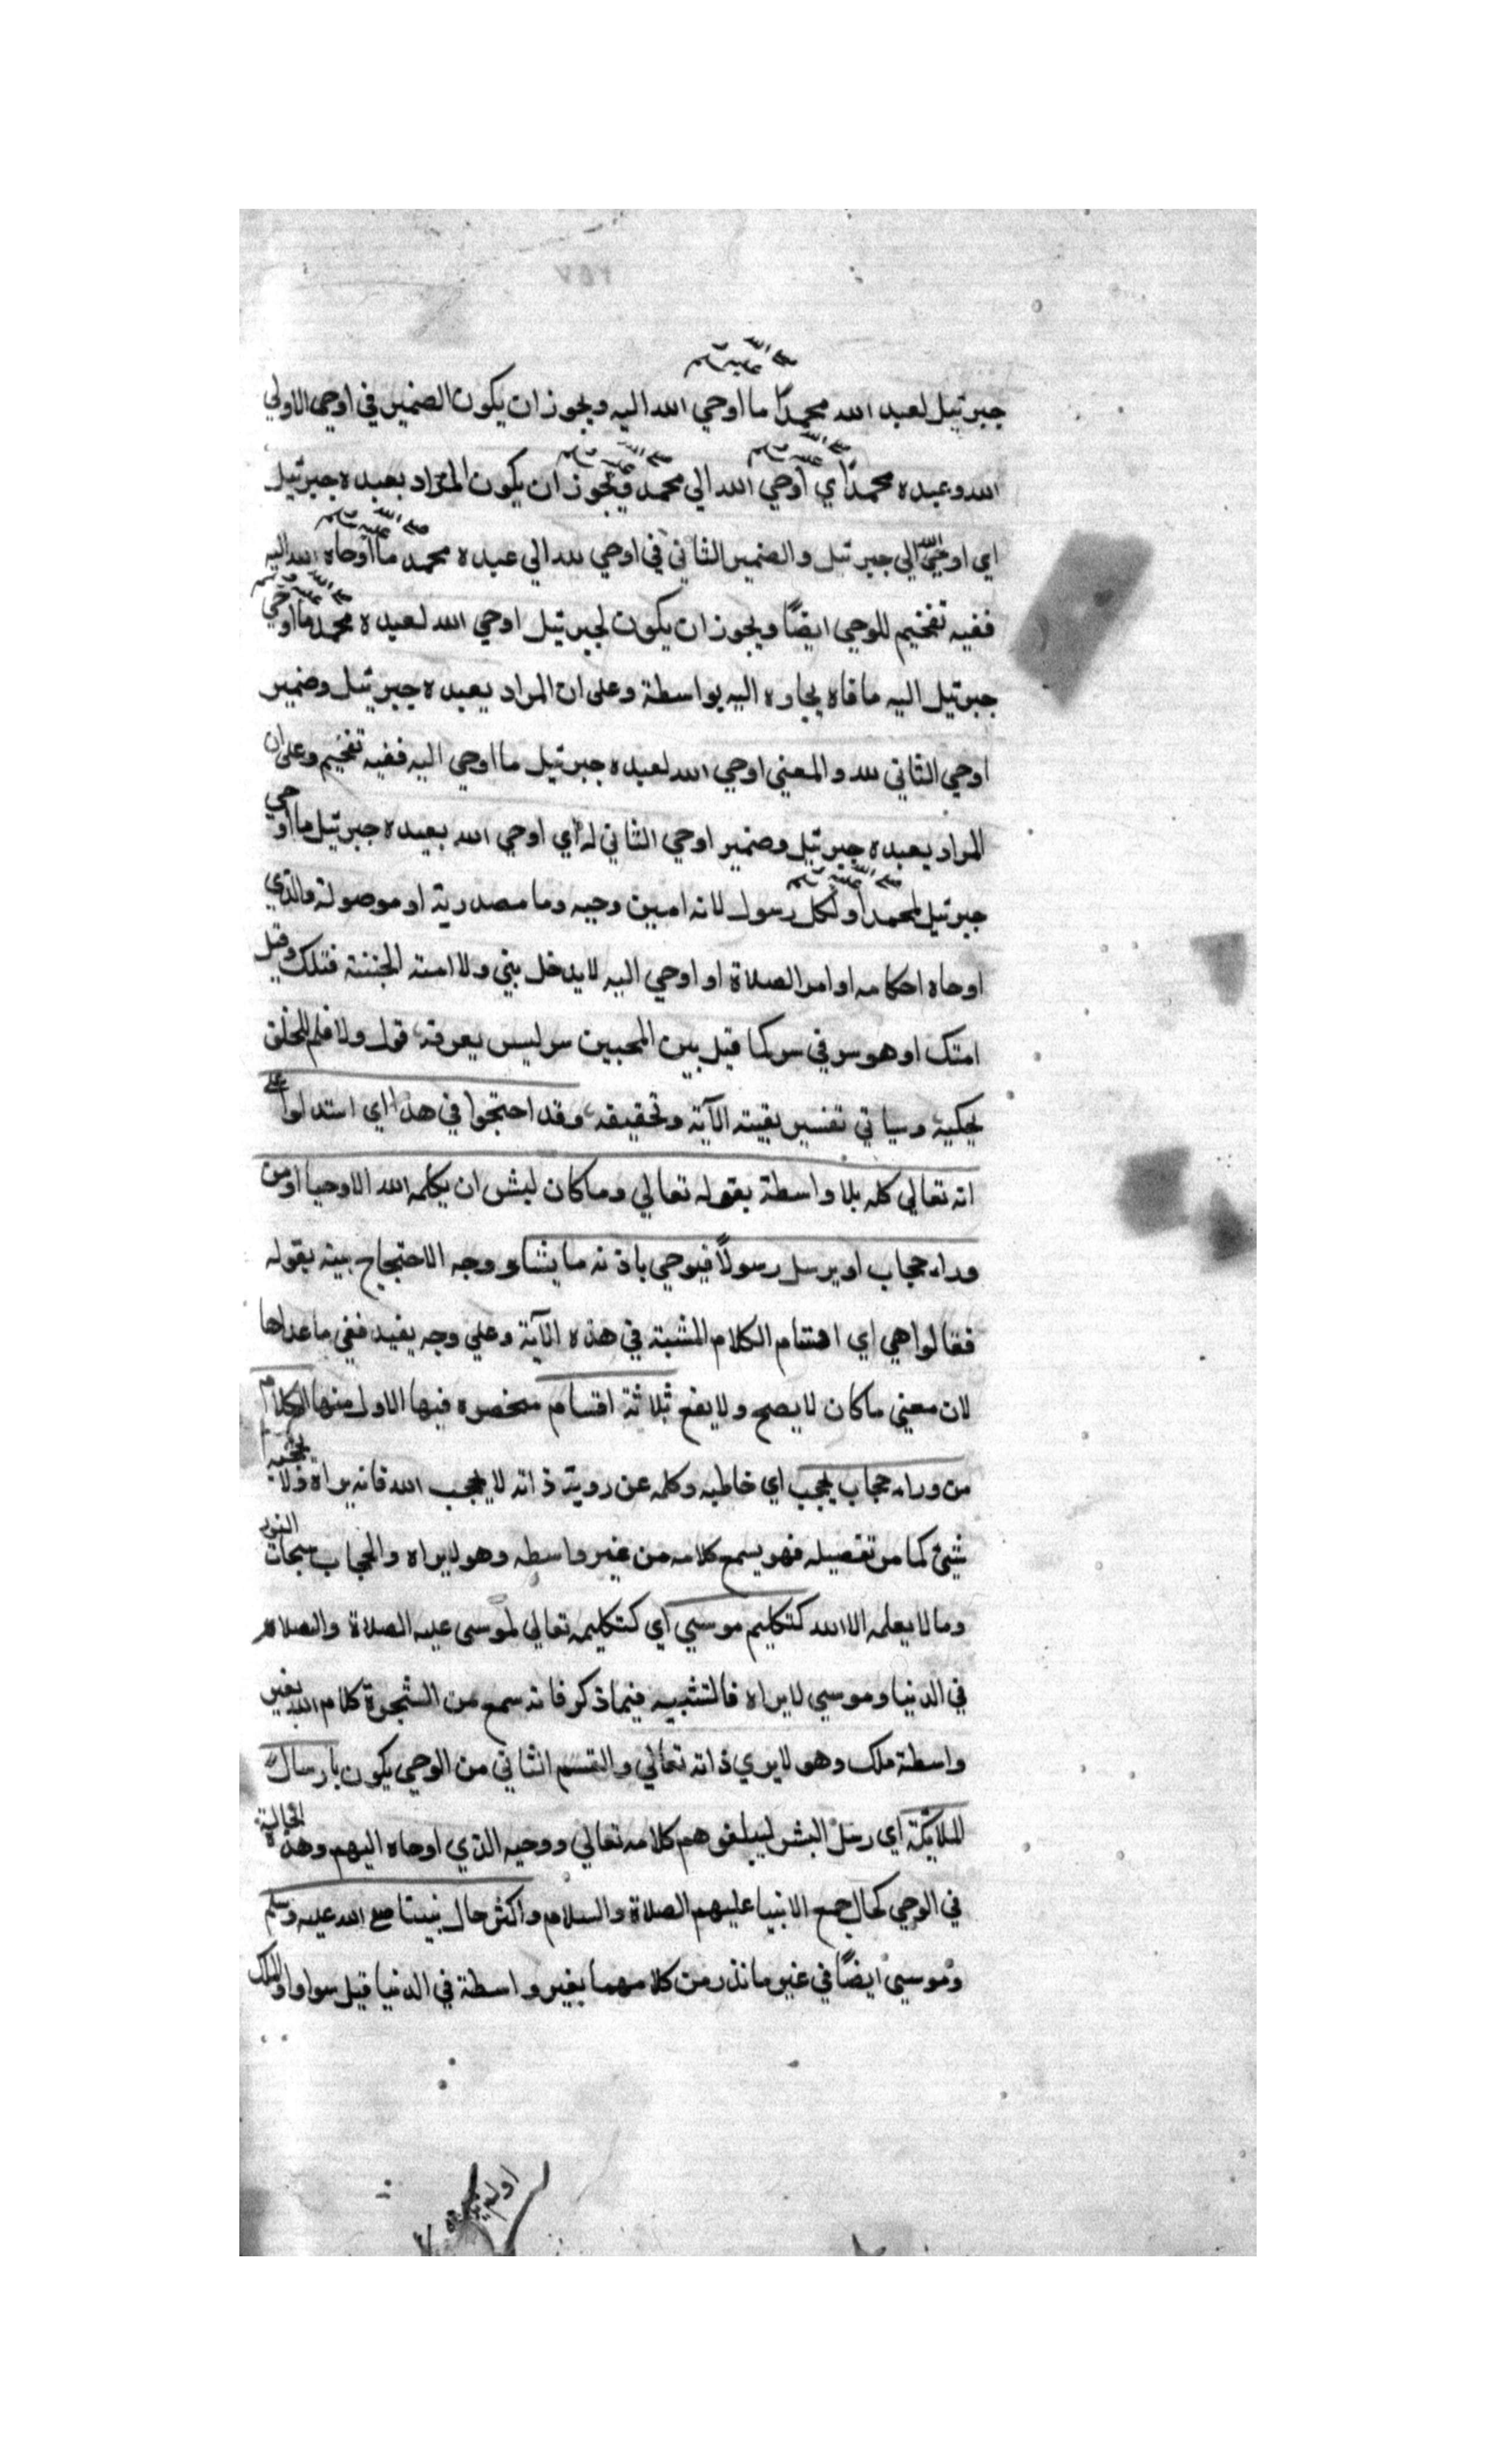 جبرئيل لعبد الله محمدا صلى الله عليه وسلم ما اوحي الله اليه ويجوز ان يكون الضمير في اوحي الاولي
الله وعبده محمدا صلى الله عليه وسلم اي اوحي الله الي محمد صلى الله عليه وسلم ويجوز ان يكون المراد بعبده جبرئيل
اي اوحي الله الي جبرئيل والضمير الثاني في اوحي لله الي عبده محمد صلى الله عليه وسلم ما اوحاه الله اليه
ففيه تفخيم للوحي ايضًا ويجوز ان يكون لجبرئيل اوحي الله لعبده محمد صلى الله عليه وسلم ما اوحي
جبرئيل اليه بواسطة وعلى ان المراد بعبده جبرئيل وضمير
اوحي الثاني لله والمعني اوحي الله لعبده جبرئيل ما اوحي اليه ففيه تفخيم وعلى ان
المراد بعبده جبرئيل وضمير اوحي الثاني له اي اوحي الله بعبده جبرئيل ما اوحي
جبرئيل لمحمد صلى الله عليه وسلم او لكل رسول لانه امين وحيه وما مصدرية او موصولة والذي
اوحاه احكامه اوامر الصلاة او اوحي اليه لا يدخل بني ولا امته الجنة قبلك وقبل
امتك او هو سر في سر كما قيل بين المحبين سر ليس يعرفه قول ولا قلم للخلق
يحكيه وسياتي تفسير بقيته الآية وتحقيقه وقد احتجوا في هذا اي استدلوا على
انه تعالي كلمه بلا واسطة بقوله تعالي وما كان لبشر ان يكلمه الله الا وحيا او من
وراء حجاب او يرسل رسولًا فيوحي باذنه ما يشاء ووجه الاحتجاج بينه بقوله
فقالوا هي اي اقسام الكلام المثبتة في هذه الآية وعلي وجه يفيد نفي ما عداها
لان معني ما كان لا يصح ولا يقع ثلاثة اقسام منحصره فيها الاول منها الكلام
من وراء حجاب يحجب اي خاطبه وكلمه عن روية ذاته لا يحجب الله فانه يراه ولا يحجبه
شيئ كما مر تفصيله فهو يسمع كلامه من غير واسطه وهو لا يراه والحجاب سبحات النور
وما لا يعلمه الا الله كتكليم موسي اي كتكليمه تعالي لموسى عليه الصلاة والصلام
في الدنيا وموسي لا يراه فالتشبيه فيما ذكر فانه سمع من الشجرة كلام الله بغير
واسطة ملك وهو لا يري ذاته تعالي والقسم الثاني من الوحي يكون بارسال
الملايكة اي رسل البشر ليبلغوهم كلامه تعالي ووحيه الذي اوحاه اليهم وهذه الحالية
في الوحي كحال جمع الانبيا عليهم الصلاة والسلام واكثر حال نبينا صلى الله عليه وسلم
وموسي ايضًا في غير ما نذر من كلامهما بغير واسطة في الدنيا قيل سوا والملك